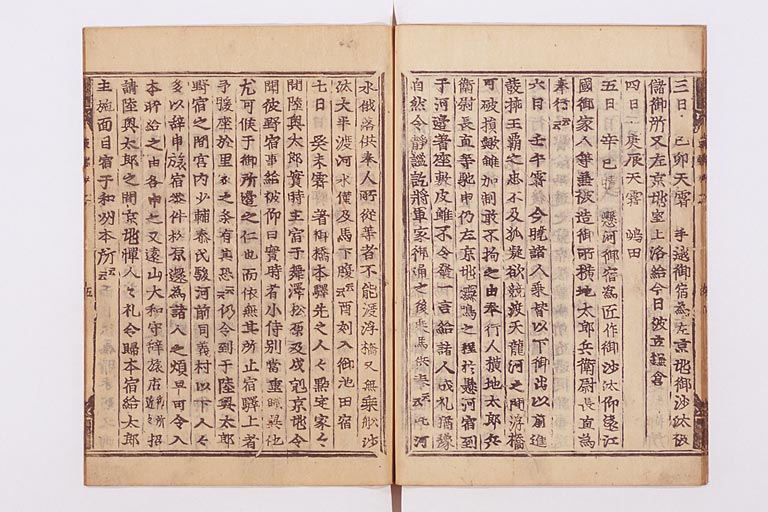 三日 己卯天霽 手越御宿為左京兆御沙汰被
儲御所又左京兆室上洛給今日波立鎌倉
四日 庚辰天霽 嶋田
五日 辛巳 懸河御宿為匠作御沙汰仰遠江
國御家人等兼被造御所横地太郎兵衛尉長直為
奉行云云
六日 壬午霽 今曉諸人乗替以下御出以前進
發擬王覇之忠不及狐疑欲競渡天龍河之間浮橋
可破損歟雖加制敢不拘之由奉行人横地太郎兵
衛尉長直等馳申仍左京兆鶏鳴之程於懸河宿到
于河邊著座敷皮雖不令發一言給諸人成礼猶豫
自然令静謐訖將軍家御通之後乗馬供奉云云此河
水俄落供奉人所従等者不能渡浮橋又無乗船沙
汰大半渡河水僅及馬下腹云云酉刻入御池田宿
七日 癸未霽 著御橋本驛先之人々點定家々
間陸奥太郎實時主宿于舞澤松原及戌剋京兆令
聞彼野宿事給被仰曰實時者小侍別當重職異他
尤可候于御所邊之仁也而依無其所止宿驛上者
予腰座於里家之条有其恐云云仍令到于陸奥太郎
野宿之間宮内少輔泰氏駿河前司義村以下人々
多以辞申旅宿參件松原還為諸人之煩早可令入
本所給之由各申之又遠山大和守辞旅店 招
請陸奥太郎之間京兆憚人々礼令歸本宿給太郎
主施面目宿于和州本所云云